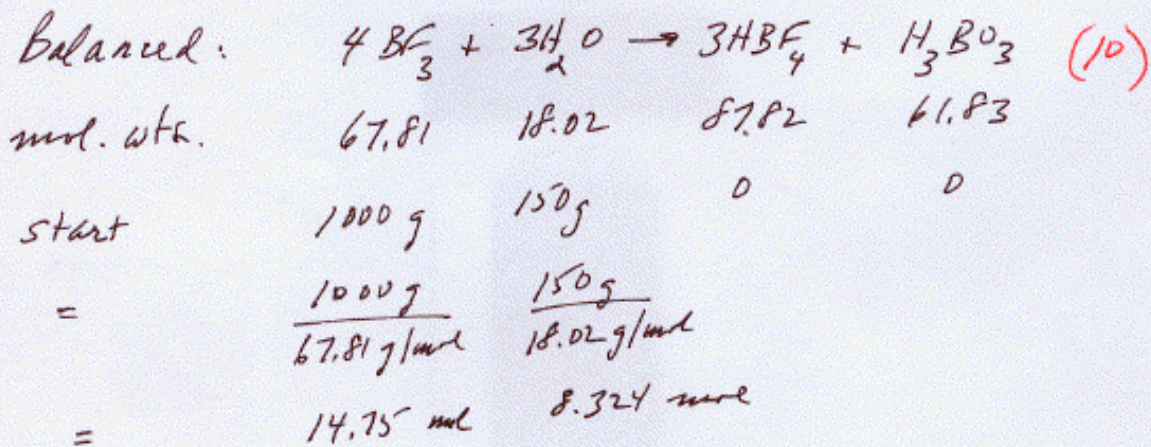 Balanced: 4 BF₃ + 3H₂O → 3HBF₄ + H₃BO₃ (10)
mol. wts. 67.81 18.02 87.82 61.83
start 1000 g 150g 0 0
= 1000g/67.81 g/mol 150g/18.02 g/mol
= 14.75 mol 8.324 mol